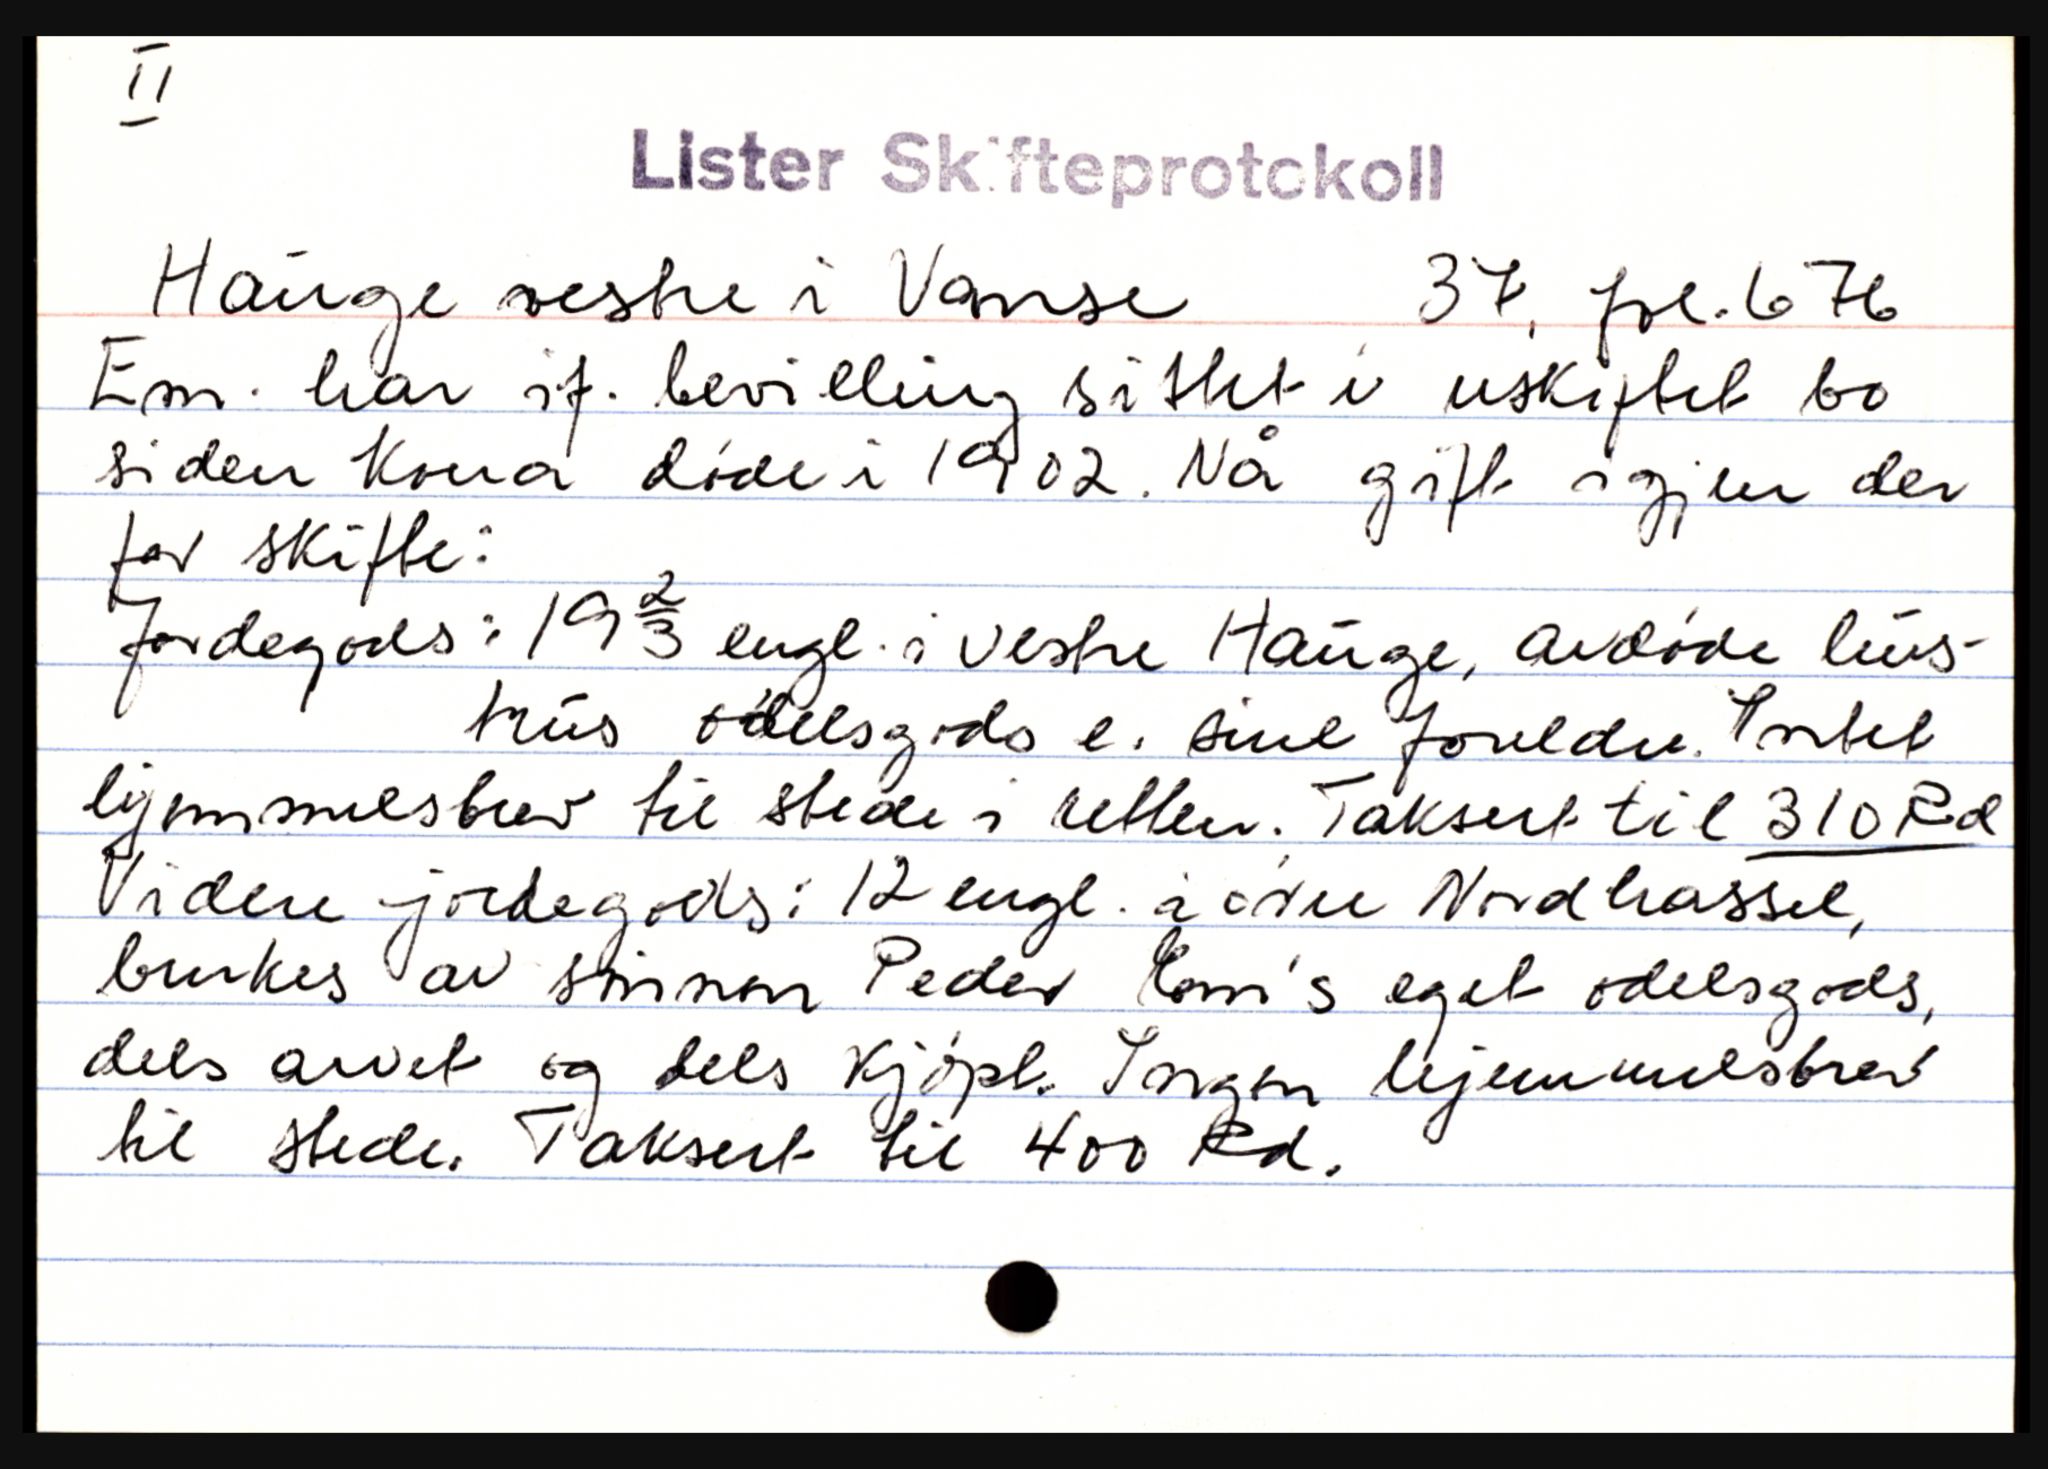 II
Lister Skifteprotokoll
Hauge vestre i Vanse 37, fol. 676
Em. har if. bevilling sittet i uskiftet bo
siden kona døde i 1902. Nå gift igjen der
for skifte:
Jordegods: 19 2/3 engl. i vestre Hauge, avdøde hus-
trus odelsgods e. sine foreldre. Intet
hjemmelsbrev til stede i retten. Taksert til 310 Rd
Videre jordegods: 12 engl. i øvre Nordhassel,
brukes av sønnen Peder Em's eget odelsgods,
dels arvet og dels kjøpt. Ingen hjemmelsbrev
til stede. Taksert til 400 Rd.